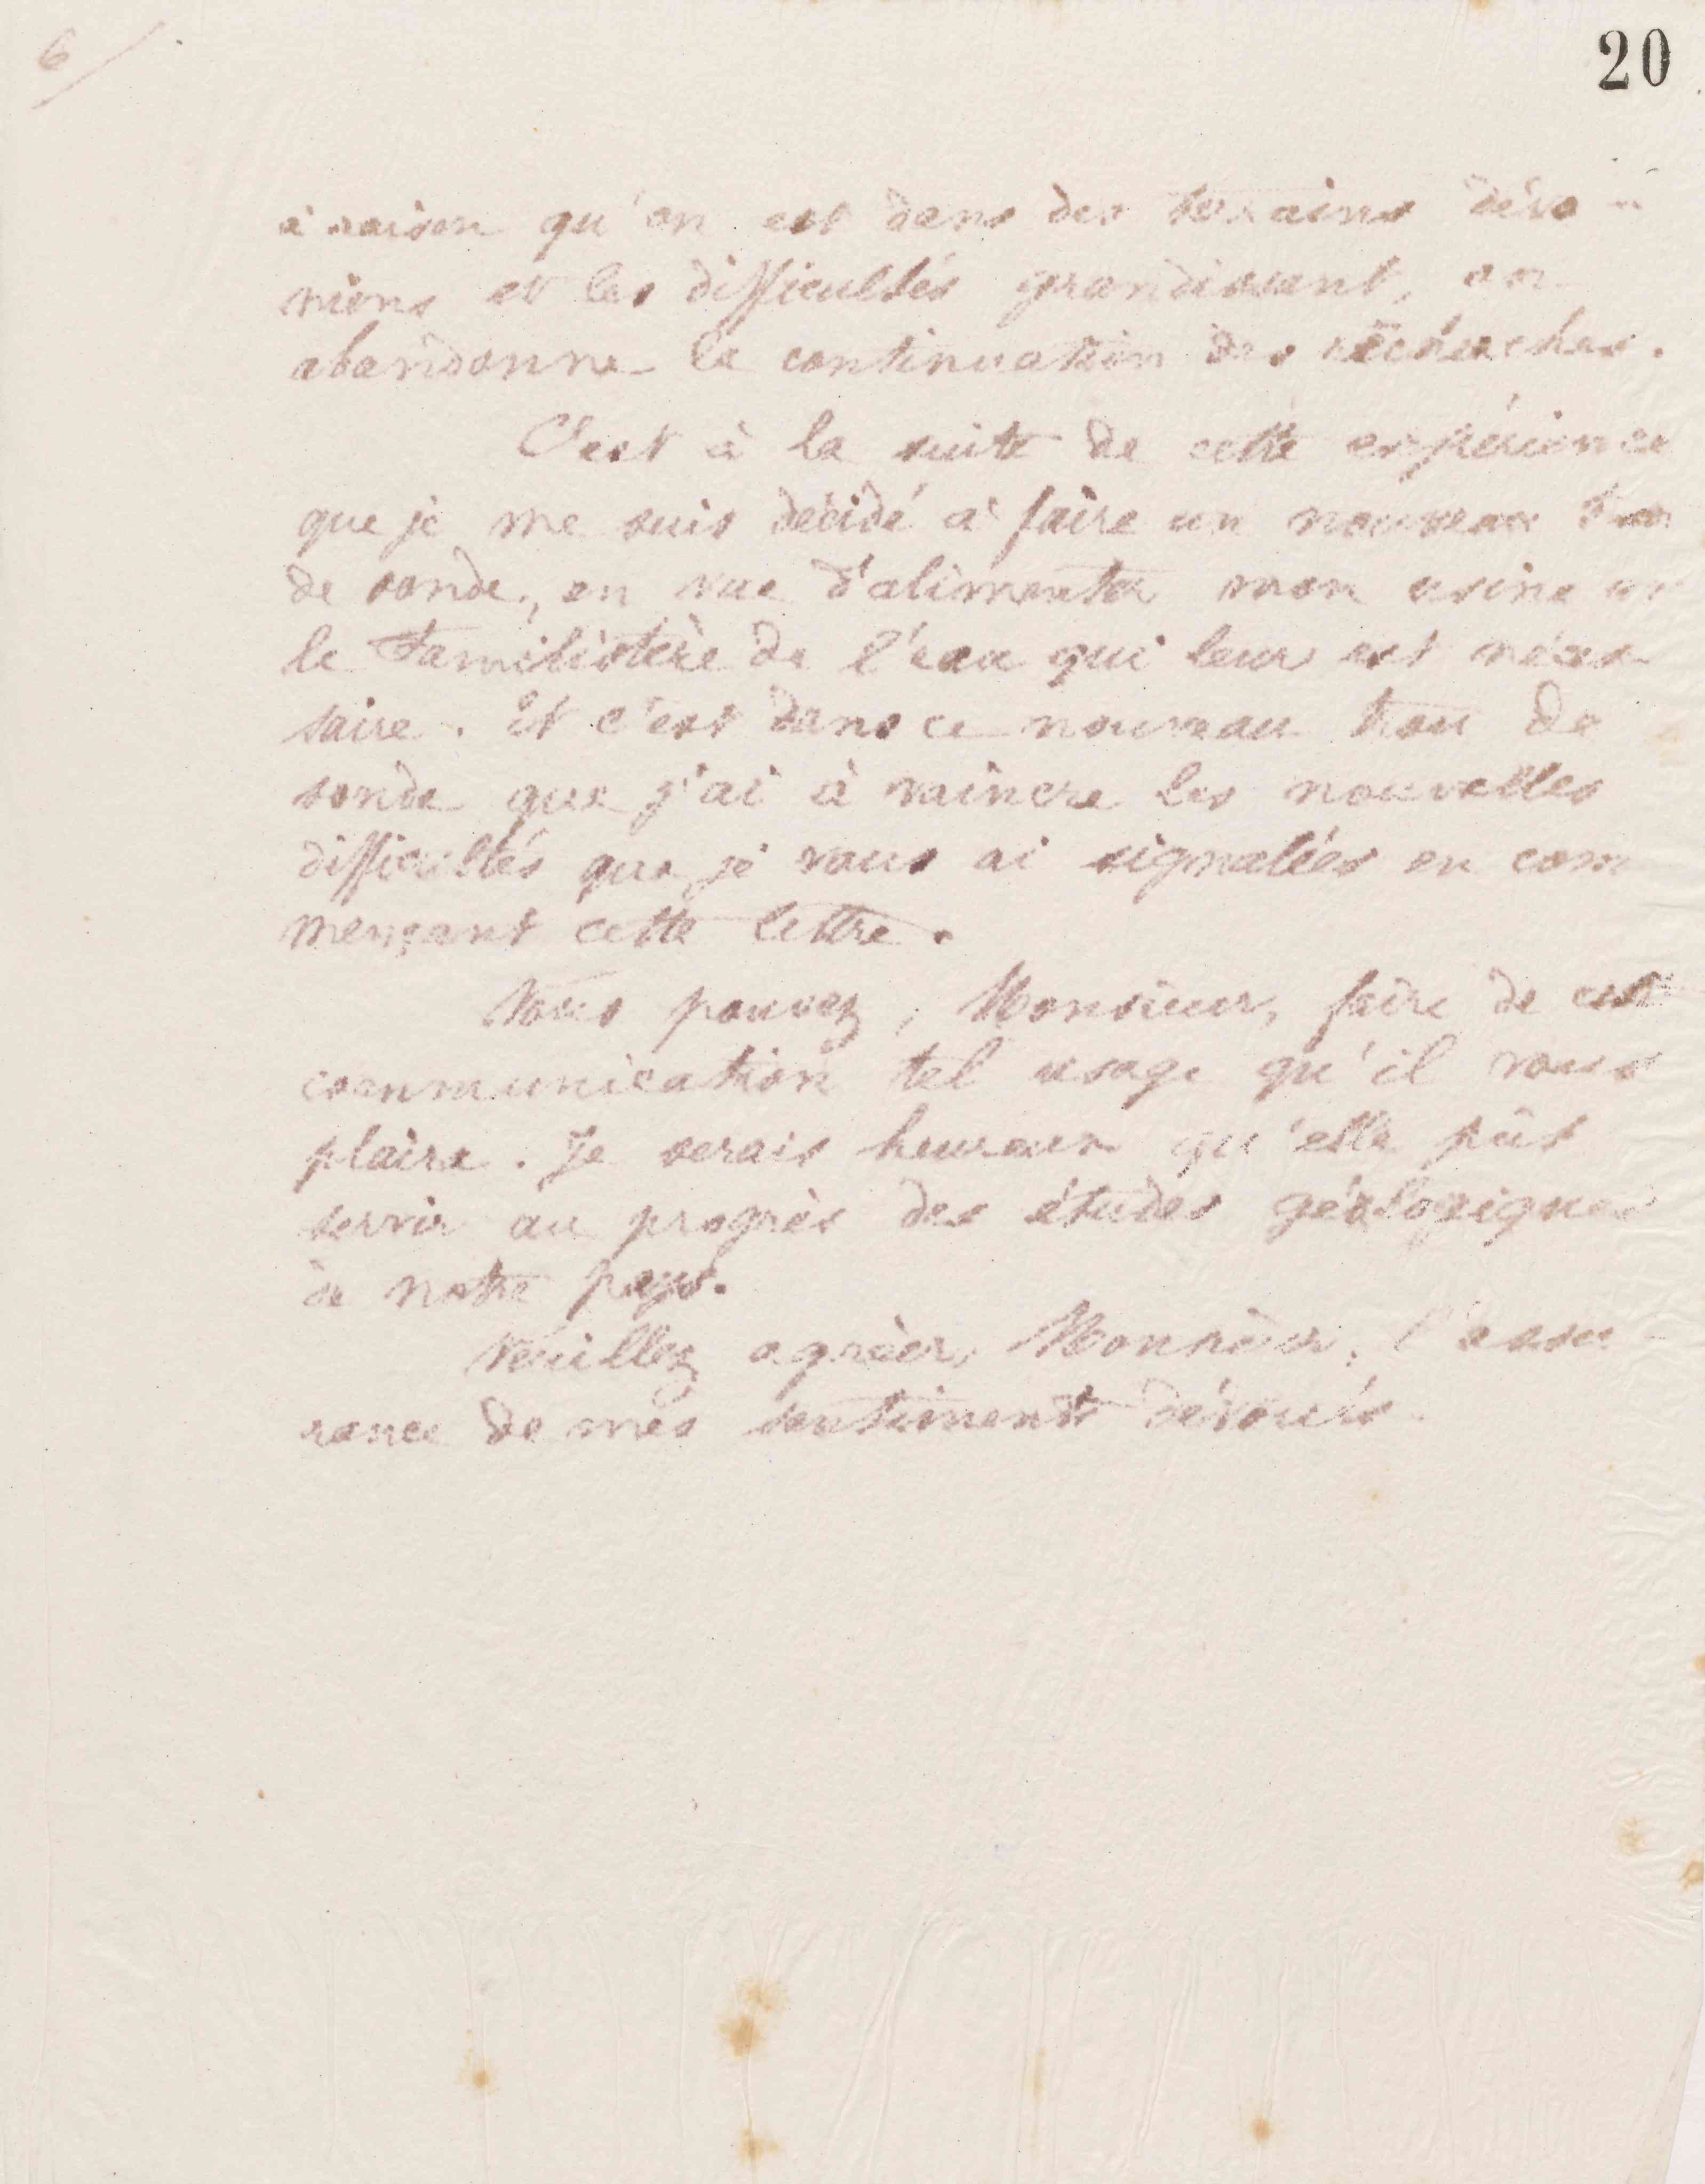 6/
20
à raison qu'on est dans des terrains dévo-
niens et les difficultés grandissant, on
abandonne la continuation des recherches.
C'est à la suite de cette expérience
que je me suis décidé à faire un nouveau trou
de sonde, en vue d'alimenter mon usine et
le Familistère de l'eau qui leur est néces-
saire. Et c'est dans ce nouveau trou de
sonde que j'ai à vaincre les nouvelles
difficultés que je vous ai signalées en com
mençant cette lettre.
Vous pouvez, Monsieur, faire de cette
communication tel usage qu'il vous
plaira. Je serais heureux qu'elle pût
servir au progrès des études géologiques
de notre pays.
Veuillez agréer, Monsieur, l'assu-
rance de mes sentiments dévoués